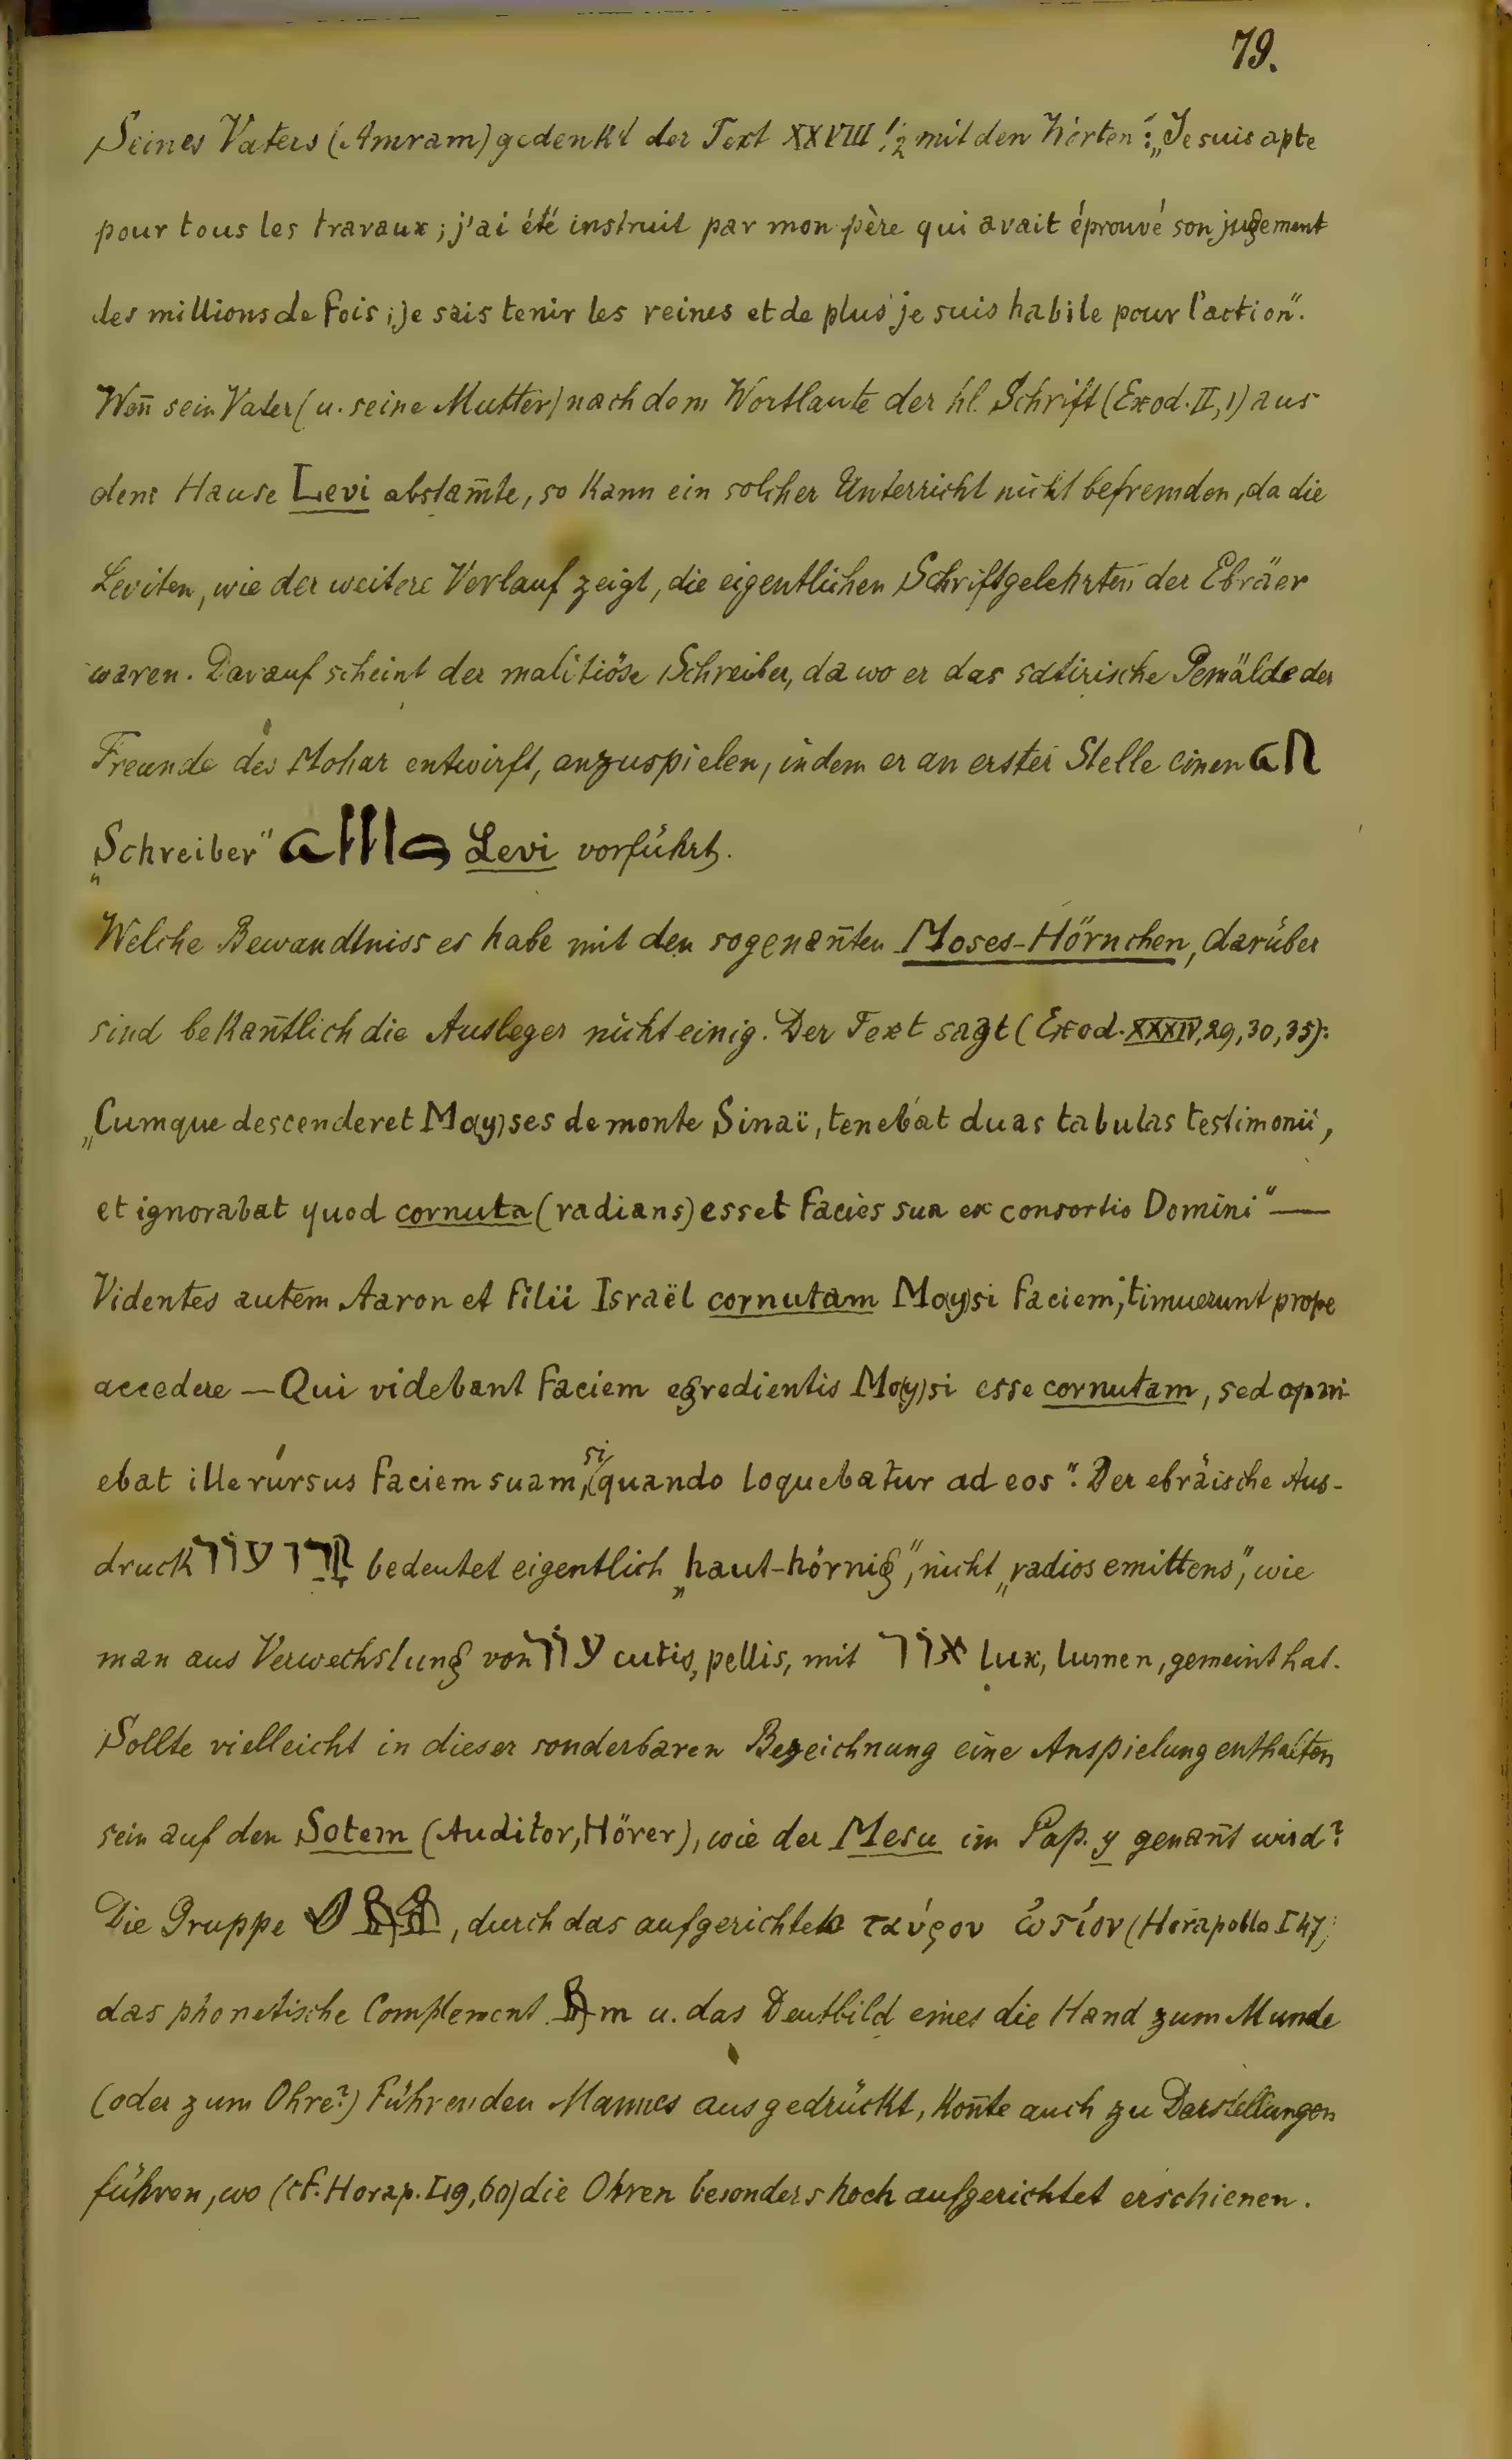 79.
Seines Vaters (Amram) gedenkt der Text XXVIII 1/2 mit den Worten: „Je suis apte
pour tous les travaux; j'ai été instruit par mon père qui avait éprouvé son jugement
des millions de fois; je sais tenir les reines et de plus je suis habile pour l'action“.
Wen̄ sein Vater (u. seine Mutter) nach dem Wortlaute der hl. Schrift (Exod. II, 1) aus
dem Hause Levi abstam̄te, so kann ein solcher Unterricht nicht befremden, da die
Leviten, wie der weitere Verlauf zeigt, die eigentlichen Schriftgelehrten der Ebräer
waren. Darauf scheint der malitiöse Schreiber, da wo er das satirische Gemälde der
Freunde des Mohar entwirft, anzuspielen, indem er an erster Stelle einen
„Schreiber“ Levi vorführt.
Welche Bewandtniss es habe mit den sogenan̄ten Moses-Hörnchen, darüber
sind bekan̄tlich die Ausleger nicht einig. Der Text sagt (Exod. XXXIV, 29, 30, 35):
„Cumque descenderet Mo(y)ses de monte Sinaï, tenebat duas tabulas testimonii,
et ignorabat quod cornuta (radians) esset facies sua ex consortio Domini“ —
Videntes autem Aaron et filii Israël cornutam Mo(y)si faciem, timuerunt prope
accedere — Qui videbant faciem egredientis Mo(y)si esse cornutam, sed operi-
ebat ille rursus faciem suam, (si quando loquebatur ad eos“. Der ebräische Aus-
druck קָרַן עוֹר bedeutet eigentlich „haut-hörnig“, nicht „radios emittens“, wie
man aus Verwechslung von עוֹר cutis, pellis, mit אוֹר lux, lumen, gemeint hat.
Sollte vielleicht in dieser sonderbaren Bezeichnung eine Anspielung enthalten
sein auf den Sotem (Auditor, Hörer), wie der Mesu im Pap. y genan̄t wird?
Die Gruppe , durch das aufgerichtete ταύρου ὠτίον (Horapollo I 47;
das phonetische Complement m u. das Deutbild eines die Hand zum Munde
(oder zum Ohre?) führenden Mannes ausgedrückt, kon̄te auch zu Darstellungen
führen, wo (cf. Horap. I 19, 60) die Ohren besonders hoch aufgerichtet erschienen.